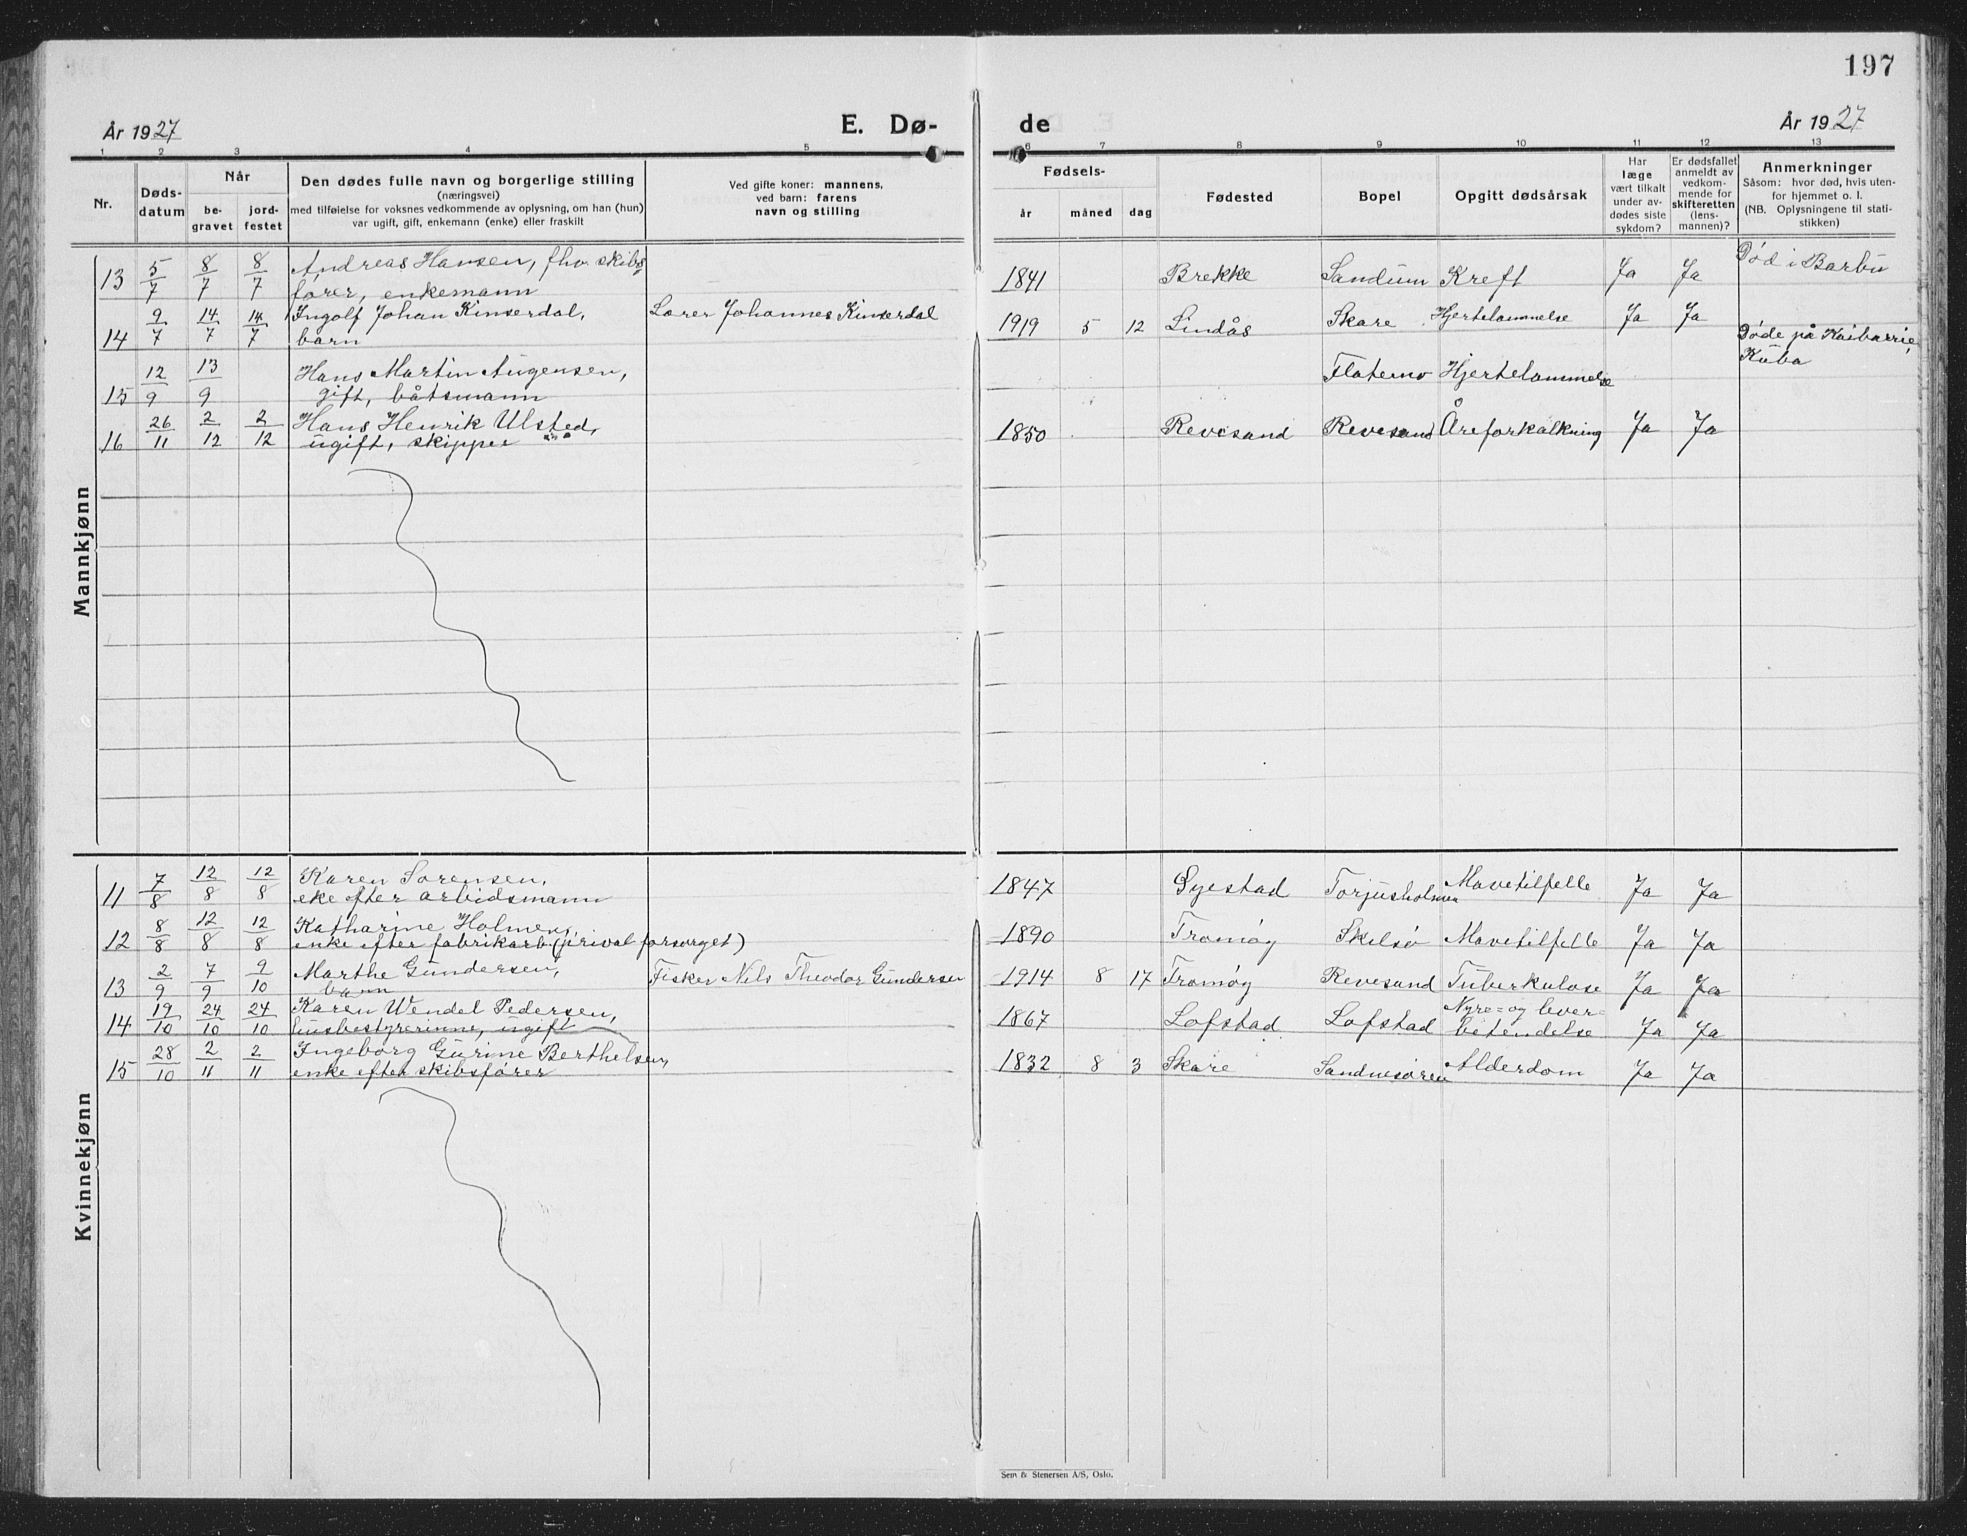 197
År 1927
E. Dø-
de
År 1927
1 2 3 4 5 6 7 8 9 10 11 12 13
Nr.
Døds-
datum
Når
be-
gravet
jord-
festet
Den dødes fulle navn og borgerlige stilling
(næringsvei)
med tilføielse for voksnes vedkommende av oplysning, om han (hun)
var ugift, gift, enkemann (enke) eller fraskilt
Ved gifte koner: mannens,
ved barn: farens
navn og stilling
Fødsels-
år måned dag
Fødested
Bopel
Opgitt dødsårsak
Har
læge
vært tilkalt
under av-
dødes siste
sykdom?
Er dødsfallet
anmeldt av
vedkom-
mende for
skifteretten
(lens-
mannen)?
Anmerkninger
Såsom: hvor død, hvis uten-
for hjemmet o. l.
(NB. Oplysningene til stati-
stikken)
Mannkjønn
13 5/7 8/7 8/7 Andreas Hansen, fhv. skibs-
fører, enkemann 1841 Brekke Sandum Kreft Ja Ja Død i Barbu
14 9/7 14/7 14/7 Ingolf Johan Kinserdal,
barn Lærer Johannes Kinserdal 1919 5 12 Lindås Skare Hjertelammelse Ja Ja
15 12/9 13/9 Hans Martin Augensen,
gift, båtsmann Hjertelammelse Døde på Kaibarrie,
Kuba
16 26/11 2/12 2/12 Hans Henrik Ulsted,
ugift, skipper 1850 Revesand Revesand Åreforkalkning Ja Ja
Kvinnekjønn
11 7/8 12/8 12/8 Karen Sørensen,
eke efter arbidsmann 1847 Gjestad Torjusholmen Mavetilfelle Ja Ja
12 8/8 12/8 12/8 Katharine Holmen,
enke efter fabrikarb. (privat forsørget) 1890 Tromøy Skilsø Mavetilfelle Ja Ja
13 2/9 7/9 9/10 Marthe Gundersen,
barn Fisker Nils Theodor Gundersen 1914 8 17 Tromøy Revesand Tuberkulose Ja Ja
14 19/10 24/10 24/10 Karen Wendel Pedersen,
husbestyrerinne, ugift 1867 Lofstad Lofstad Nyre- og lever-
betendelse Ja Ja
15 28/10 2/11 2/11 Ingeborg Gurine Berthelsen,
enke efter skibsfører 1832 8 3 Skare Sandnesøren Alderdom Ja Ja
Sem & Stenersen A/S, Oslo.